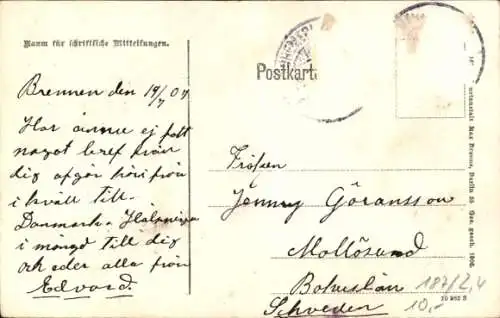 Raum für schriftliche Mitteilungen.
Postkarte
Bremen den 19/7 07
Har ännu ej fått
något bref från
dig afgår härifrån
i kväll till
Danmark. Hälsningar
i mängd till dig
och eder alla från
Edvard.
Fröken
Jenny Göransson
Mollösund
Bohuslän
Schweden
187/2,4
10,-
Max Breuer, Berlin
Ges. gesch. 1906.